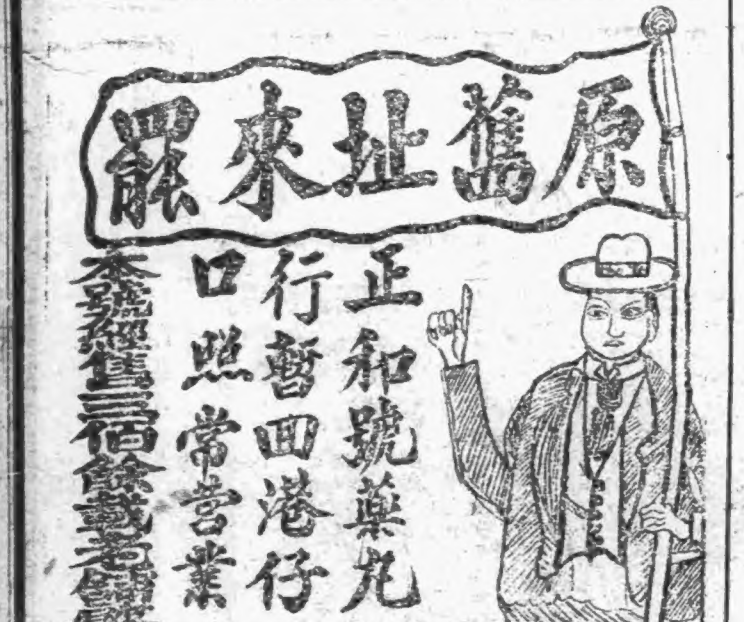 原舊址來罷
正和號藥丸
行暫回港仔
口照常營業
本號經售三佰餘載老舖